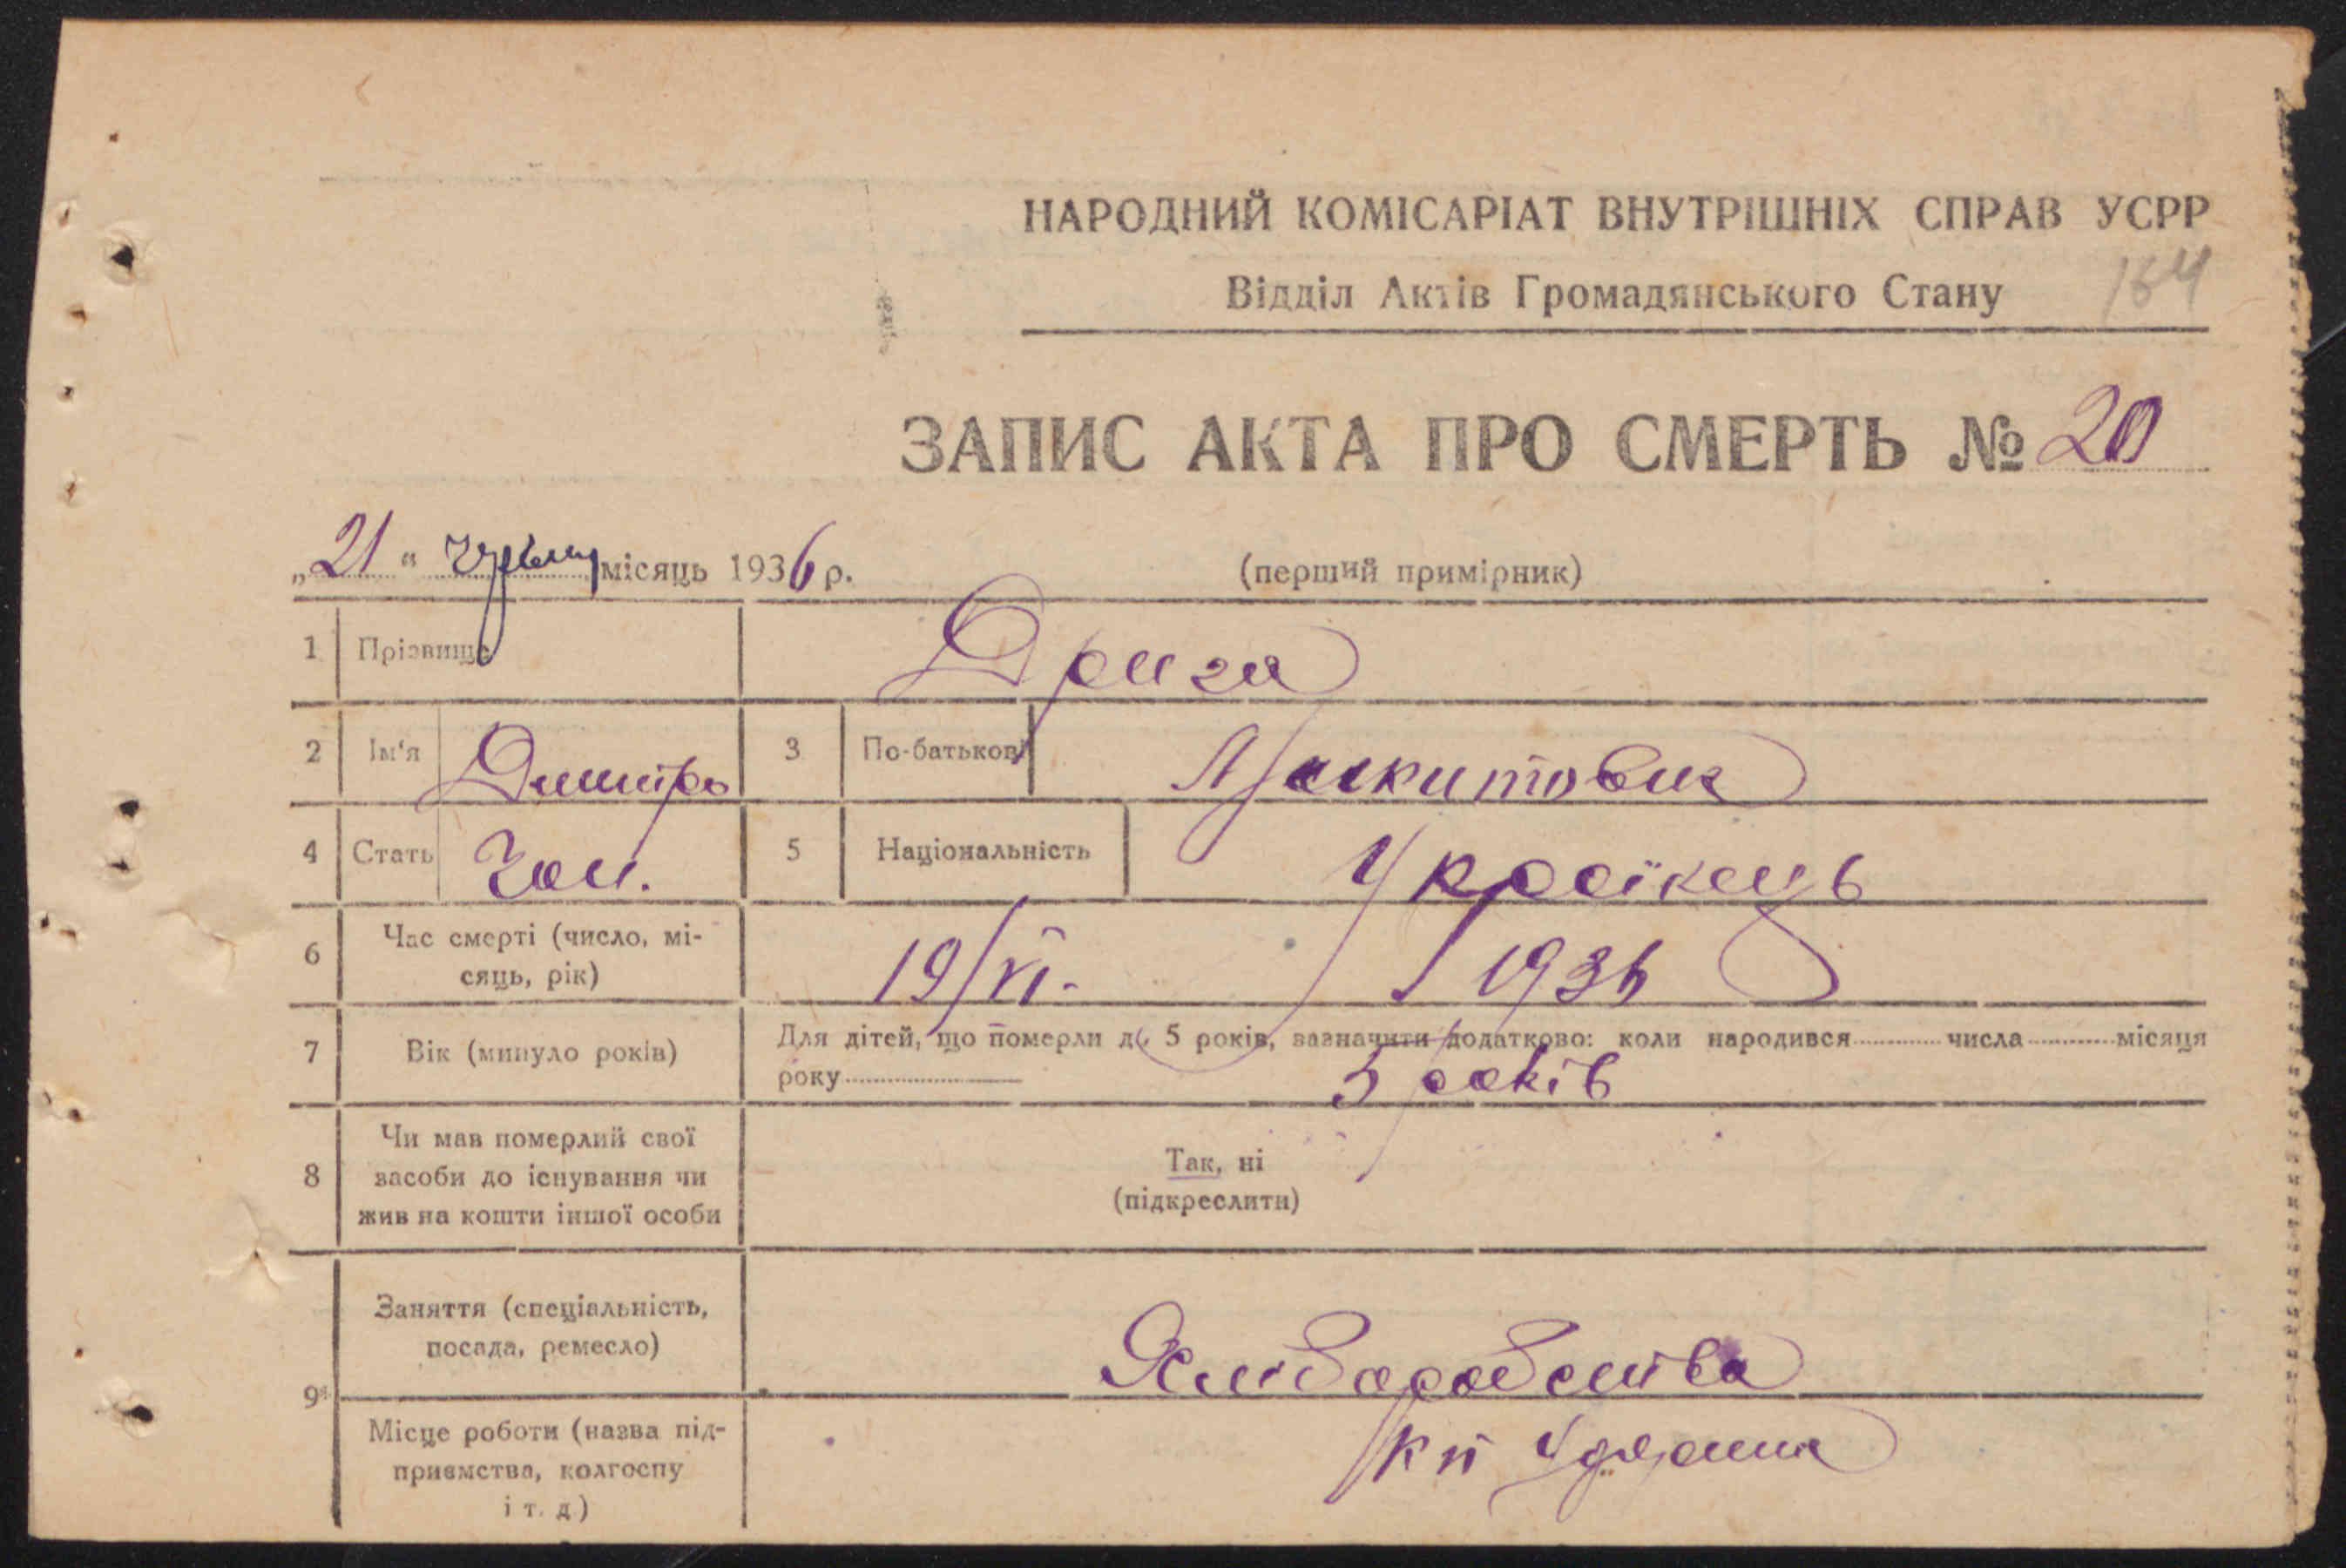 НАРОДНИЙ КОМІСАРІАТ ВНУТРІШНІХ СПРАВ УСРР
Відділ Актів Громадянського Стану 164
ЗАПИС АКТА ПРО СМЕРТЬ № 20
„21“ червня місяць 1936 р. (перший примірник)
1 Прізвище Дрига
2 Ім'я Дмитро 3 По-батькові
4 Стать Чол. 5 Національність Українець
6 Час смерті (число, мі-
сяць, рік) 19/VI- 1936
7 Вік (минуло років) Для дітей, що померли до 5 років, зазначити додатково: коли народився числа місяця
року 5 років
8 Чи мав померлий свої
засоби до існування чи
жив на кошти іншої особи
Так, ні
(підкреслити)
9 Заняття (спеціальність,
посада, ремесло) Хліборобства
Місце роботи (назва під-
приємства, колгоспу
і т. д.)